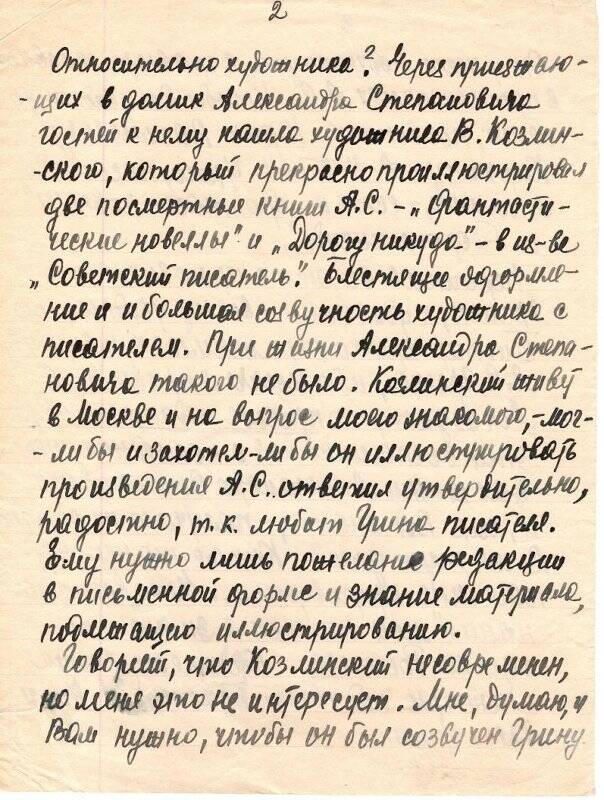 2
Относительно художника? Через приезжаю-
-щих в домик Александра Степановича
гостей к нему нашла художника В. Козлин-
-ского, который прекрасно проиллюстрировал
две посмертные книги А.С. – „Фантасти-
ческие новеллы" и „Дорогу никуда" – в из-ве
„Советский писатель". Блестящее оформле-
ние и и большая созвучность художника с
писателем. При жизни Александра Степа-
новича такого не было. Козлинский живет
в Москве и на вопрос моего знакомого, – мог-
-ли бы и захотел-ли бы он иллюстрировать
произведения А.С. ответил утвердительно,
радостно, т.к. любит Грина писателя.
Ему нужно лишь пожелание редакции
в письменной форме и знание материала,
подлежащего иллюстрированию.
Говорят, что Козлинский несовременен,
но меня это не интересует. Мне, думаю, и
Вам нужно, чтобы он был созвучен Грину